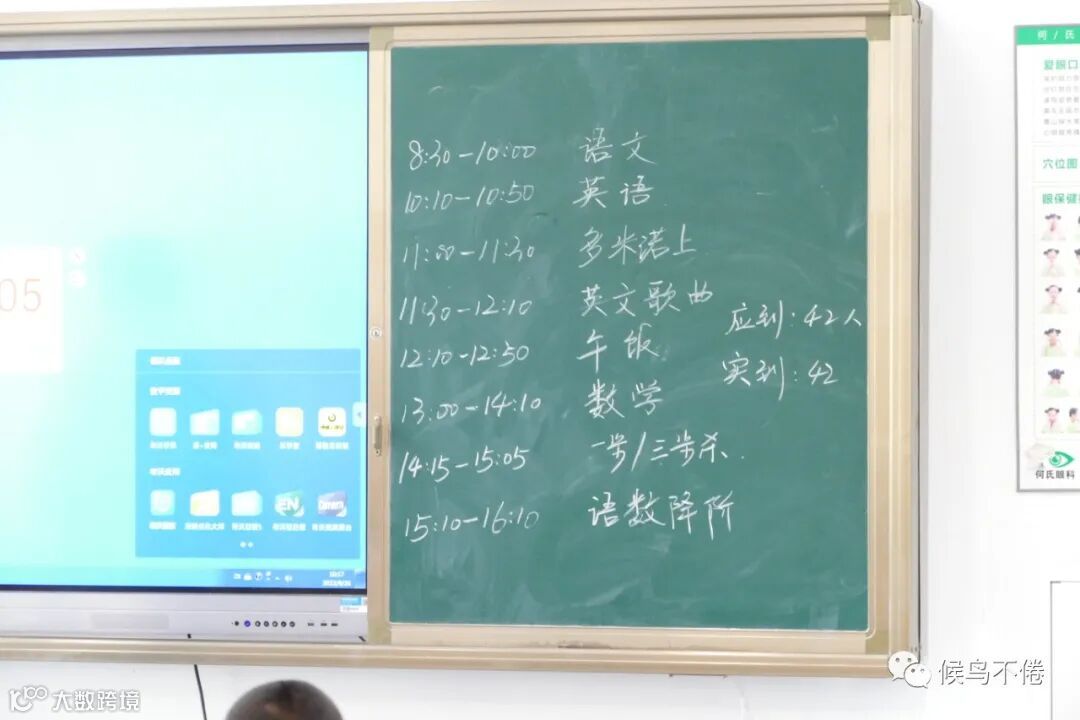 8:30-10:00 语文
10:10-10:50 英语
11:00-11:30 多米诺上
11:30-12:10 英文歌曲
12:10-12:50 午饭
13:00-14:10 数学
14:15-15:05 一步/三步杀
15:10-16:10 语数降阶
应到:42人
实到:42
05
EN
10:17
何/氏
爱眼口
穴位图
眼保健
何氏眼科
候鸟不倦
大数跨境